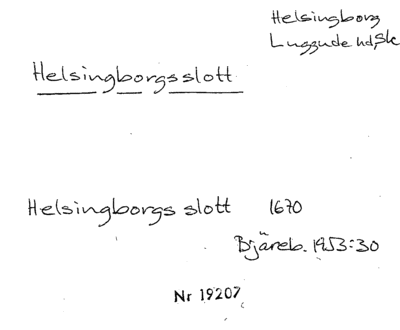 Helsingborg
Luggude hd, Sk
Helsingborgs slott
Helsingborgs slott 1670
Bjäreb. 1953:30
Nr 19207